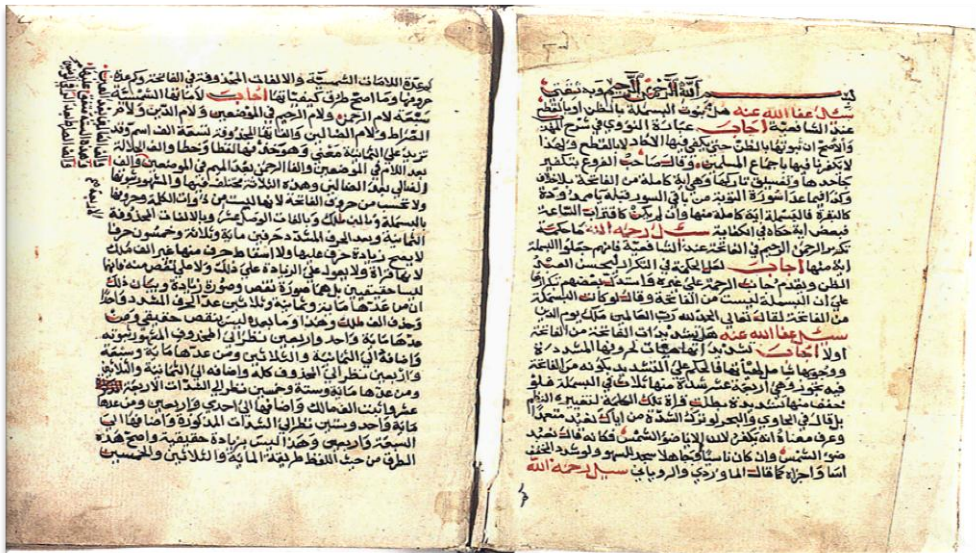 بسم الله الرحمن الرحيم وبه ثقتي
سئل عفا الله عنه هل ثبوت البسملة بالظن او بالقطع
عند الشافعية اجاب عبارة النووي في شرح المهذب
والاصح ان ثبوتها بالظن حتى يكفي فيها الاحاد لا بالقطع ولهذا
لا يكفر نافيها باجماع المسلمين وقال صاحب الفروع بتكفير
جاحدها وتفسيق تاركها وهي اية كاملة من الفاتحة بلا خلاف
وكذا فيما عدا سورة التوبة من باقي السور
كالبقرة فالبسملة اية كاملة منها وان لم يكن كاقتربت الساعة
فبعض اية حكاه في الكفاية سئل رحمه الله ما حكمة
تكرير الرحمن الرحيم في الفاتحة عند الشافعية فانهم جعلوا البسملة
اية منها اجاب لعل الحكمة في التكرار ليحسن العبد
الظن ويقدم جانب الرحمة على غيره واستدل بعضهم بتكرارها
على ان البسملة ليست من الفاتحة وقال لو كانت البسملة
من الفاتحة لقال تعالى الحمد لله رب العالمين ملك يوم الدين
سئل عفا الله عنه هل تشديدات الفاتحة من الفاتحة
اولا اجاب تشديداتها هيات لحروفها المشددة
ووجوبها شامل لهيأتها فالحكم على المشدد بكونه من الفاتحة
فيه تجوز وهي اربعة عشر شدة منها ثلاث في البسملة فلو
خفف منها تشديدة بطلت قراة تلك الكلمة لتغييره النظم
بل قال في الحاوي والبحر لو ترك الشدة من اياك نعبد متعمدا
وعرف معناه انه يكفر لان الايا ضوء الشمس فكانه قال نعبد
ضوء الشمس وان كان ناسيا او جاهلا سجد للسهو ولو شدد المخفف
اسا واجزاه كما قاله الماوردي والروياني سئل رحمه الله
كم عدة اللامات الشمسية والالفات المحذوفة في الفاتحة وكم عدة
حروفها وما اصح طرق كيفياتها اجاب لاماتها الشمسية
سبعة لام الرحمن ولام الرحيم في الموضعين ولام الدين ولام
الصراط ولام الضالين والفاتها المحذوفة تسعة الف اسم وقد
تزيد على الثمانية معنى وهو حذفها لفظا وخطا والف الجلالة
بعد اللام في الموضعين والف الرحمن بعد الميم في الموضعين والف
العالمين بعد العين وهذه الثلاثة مختلف فيها والمشهور ثبوتها
ولا تحسب من حروف الفاتحة لانها ليست من ذوات الكلمة وحروفها
الثمانية وبعد الحرف المشدد حرفين ماية وثلاثة وخمسون حرفا
لا يصح زيادة حرف عليها ولا اسقاط حرف منها غير الف ملك
لانها قراة ولا يعول على الزيادة على ذلك ولا على نقص منه فانهما
ليسا حقيقيين بل هما صورة نقص وصورة زيادة وبيان ذلك
ان من عدها ماية وثمانية وثلاثين عد الحرف المشدد واحدا
وحذف الف ملك وهذا وما بعده ليس بنقص حقيقي ومن
عدها ماية واحد واربعين نظر الى المحذوف المشهور ثبوته
واضافه الى الثمانية والثلاثين ومن عدها ماية وسبعة
واربعين نظر الى المحذوف كله واضافه الى الثمانية والثلاثين
ومن عدها ماية وستة وخمسين نظر الى الشدات الاربعة
عشر واثبت الف مالك واضافها الى احدى واربعين ومن عدها
ماية واحد وستين نظر الى الشدات المذكورة واضافها الى
السبعة واربعين وهذا ليس بزيادة حقيقية واصح هذه
الطرق من حيث اللفظ طريقة الماية والثلاثين والخمسين